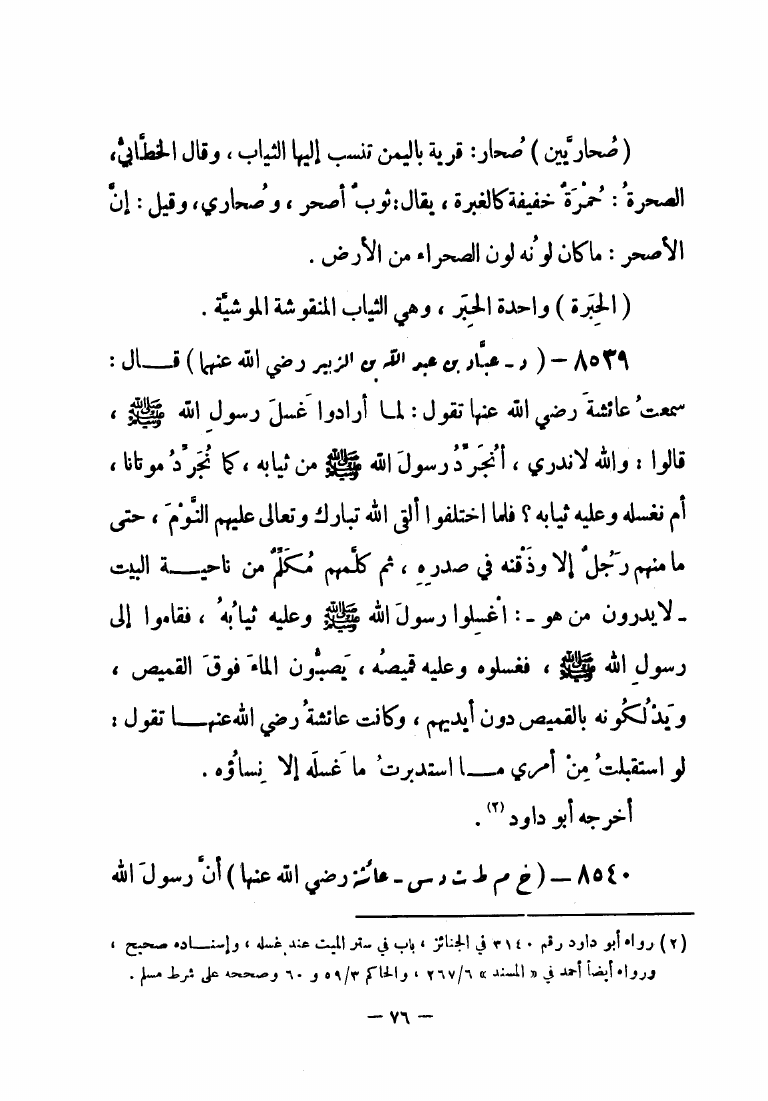 ( صُحاريَّين ) صُحار: قرية باليمن تنسب إليها الثياب ، وقال الخطَّابيُّ،
الصحرةُ : حُمْرَةٌ خفيفة كالغبرة ، يقال: ثوبٌ أصحر ، وصُحاري، وقيل : إنَّ
الأصحر : ما كان لونُه لون الصحراء من الأرض .
( الحِبَرة ) واحدة الحِبَر ، وهي الثياب المنقوشة الموشيَّة .
٨٥٣٩ – ( د - عبَّاد بن عبد الله بن الزبير رضي الله عنهما ) قــال :
سمعتُ عائشةَ رضي الله عنها تقول : لمـا أرادوا غَسلَ رسولِ الله ﷺ ،
قالوا : والله لاندري ، أنُجَرِّدُ رسولَ الله ﷺ من ثيابه ، كما نُجَرِّدُ موتانا ،
أم نغسله وعليه ثيابه ؟ فلما اختلفوا ألقى الله تبارك وتعالى عليهم النَّوْمَ ، حتى
ما منهم رَجُلٌ إلا وذَقْنه في صدرِهِ ، ثم كلَّمهم مُكَلِّمٌ من ناحيــة البيت
ـ لايدرون من هو ـ : اغْسِلوا رسولَ الله ﷺ وعليه ثيابُهُ ، فقاموا إلى
رسولِ الله ﷺ ، فغسلوه وعليه قميصُه ، يَصبُّون الماءَ فوقَ القميص ،
ويَدْلُكُونه بالقميص دون أيديهم ، وكانت عائشةُ رضي الله عنهـا تقول :
لو استقبلتُ مِنْ أمري مــا استدبرتُ ما غَسلَه إلا نِساؤُه .
أخرجه أبو داود (٢) .
٨٥٤٠ – ( خ م ط ت د س - عائشة رضي الله عنها ) أنَّ رسولَ الله
(٢) رواه أبو داود رقم ٣١٤٠ في الجنائز ، باب في ستر الميت عند غسله ، وإسنــاده صحيح ،
ورواه أيضاً أحمد في « المسند » ٢٦٧/٦ ، والحاكم ٥٩/٣ و ٦٠ وصححه على شرط مسلم .
– ٧٦ –